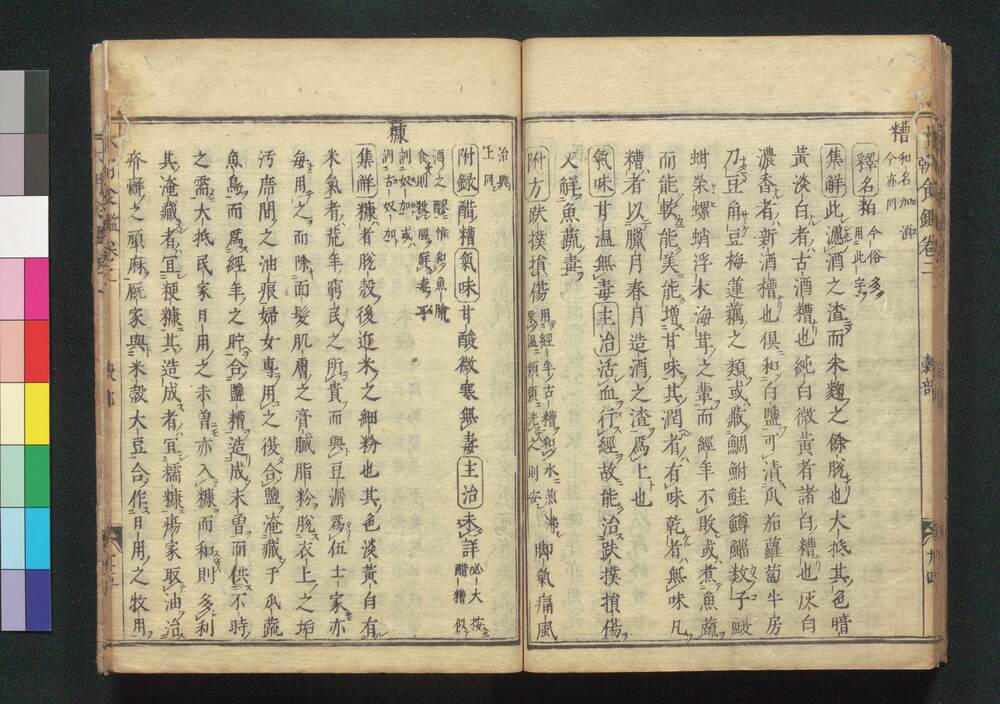 糟 和名加須 今亦同
釋名粕 今俗多用此字
集解此漉酒之渣而米麹之餘脱也大抵其色暗
黃淡白者古酒糟也純白微黃者諸白糟也灰白
濃香者新酒糟也俱和白鹽可漬瓜茄蘿蔔牛房
刀豆角豆梅蓮藕之類或藏鯛鮒鮭鱒鯔數子鰒
蚶榮螺蛸浮木海茸之輩而經年不敗或煮魚蔬
而能軟能美能増甘味其潤者有味乾者無味凡
糟者以臘月春月造酒之渣爲上也
氣味甘温無毒主治活血行經故能治趺撲損傷
又鮮魚蔬毒
附方趺撲損傷 用經年古糟和水煎沸 乘温頻頻洗之則安 脚氣痛風
治與上同
附録醋糟氣味甘酸微寒無毒主治未詳 必大按醋糟似
酒之 惟和魚膾食則 鮮毒乎
糠 訓奴加或訓古奴加
集解糠者脱殼後近米之細粉也其色淡黃白有
米氣者荒年窮民之所貴而與豆滓爲伍士家亦
毎用之而除面髪肌膚之膏膩脂粉脱衣上之垢
汚席間之油痕婦女專用之後合鹽淹藏于瓜蔬
魚鳥而爲經年之貯合鹽糟造成未曽而供不時
之需大抵民家日用之未曽亦入糠而和則多利
其淹藏者宜粳糠其造成者宜糯糠瘍家取油治
疥癬之頑麻厩家與米穀大豆合作日用之牧用